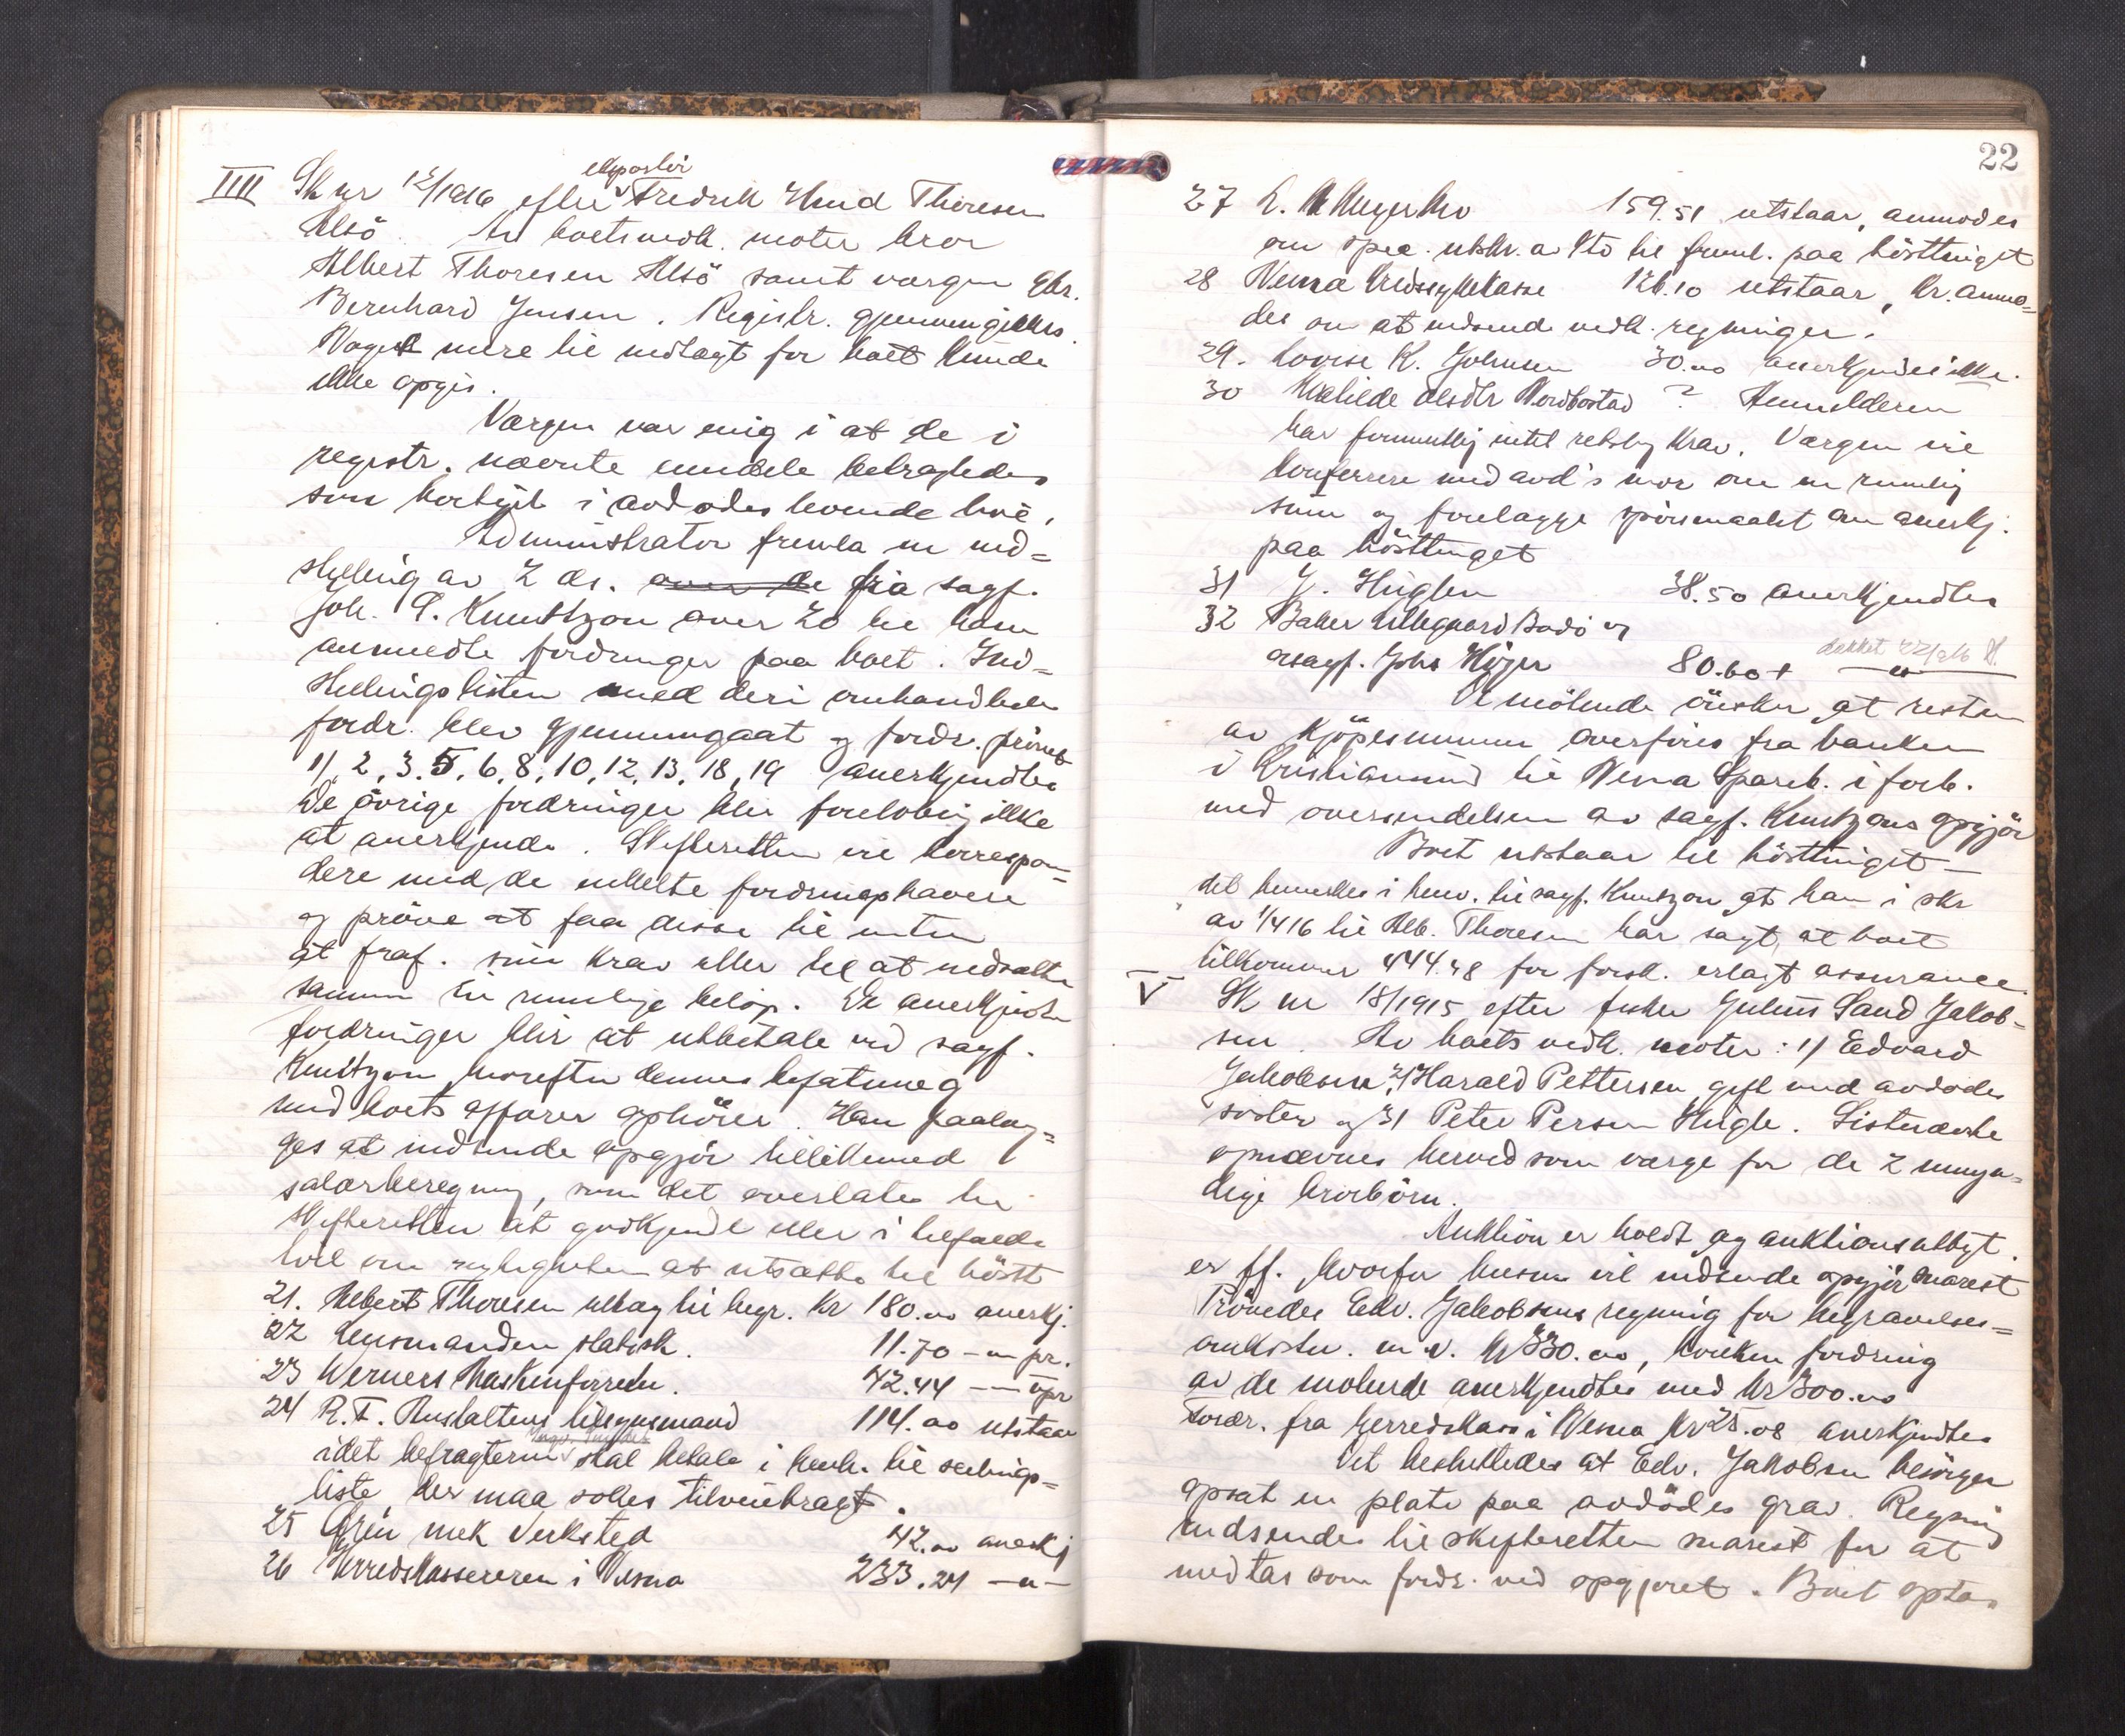 IIII Sk nr 12/1916 efter Fredrik Hund Thoresen
Alsö. Av boets vedk. møter bror
Albert Thoresen Alsö samt værgen Gbr.
Bernhard Jensen. Registr. gjennemgikkes.
Noget mere til indtægt for boet kunde
ikke opgis.
Værgen var enig i at de i
registr. nævnte eiendele betragtedes
som bortgit i avdødes levende live.
Administrator fremla en ind=
stilling av 2 ds. over de fra sagf.
Joh. P. Knudtzon over 20 til ham
anmeldte fordringer paa boet. Ind=
stillingslisten med deri omhandlede
fordr. blev gjennemgaat og fordr. prövet
1, 2, 3, 5, 6, 8, 10, 12, 13, 18, 19 anerkjendtes
De övrige fordringer blir foreløbig ikke
at anerkjende. Skifteretten vil korrespon=
dere med de enkelte fordringshavere
og pröve at faa disse til enten
at fraf. sine krav eller til at nedsætte
samme til rimelige beløp. De anerkjendte
fordringer blir at utbetale ved sagf.
Knudtzon hvorefter dennes befatning
med boets affærer ophörer. Han paalæg=
ges at indsende opgjör tillikemed
salærberegning, som det overlates til
skifteretten at godkjende eller i tilfælde
at utsætte til höstt
21. Albert Thoresen utlæg til begr. Kr 180.00 anerkj.
22 Lensmanden skatsk. 11.70 - " - pr.
23 Werners Maskinforretn. 42.44 - " - upr
24 R.T. Anstaltens tilsynsmand 114.00 utstaar
idet befragteren skal betale i henh. til seilings=
liste, der maa søkes tilveiebragt.
25 Grein mek Verksted 42.00 anerkj
26 Herredskassereren i Vesna 233.24 - " -
22
27 L. Meyer Mo 159.51 utstaar, anmodes
om spec. utskr. a Cto til freml. paa hösttinget
28 Vesna Kredssykekasse 126.10 utstaar, Kr. anmo=
des om at indsende vedk. regninger.
29. Lovise K. Johnsen 30.00 anerkjendes ikke.
30 Matilde Olsdtr Nordbostad ? Anmelderen
har formentlig intet retslig krav. Værgen vil
konferere med avd's mor om en rimelig
sum og forelægge spörsmaalet om anerkj.
paa hösttinget
31 J. Hugten 38.50 anerkjendtes
32 Baker Lillegaard Bodö v
orsagf. Johs Höyer 80.60 + - " -
dekket 22/
De mötende önsker at resten
av kjöpesummen overföres fra banken
i Kristiansund til Vesna Spareb. i forb.
med oversendelsen av sagf. Knudtzons opgjör
Boet utstaar til hösttinget -
det bemerkes i henv. til sagf. Knudtzon at han i skr
av 1/4 16 til Alb. Thoresen har sagt, at boet
tilkommer 444.48 for forsk. erlagt assurance.
V Sk nr 18/1915 efter fisker Julius Sand Jakob=
sen. Av boets vedk. møter: 1) Edvard
Jakobsen, 2) Harald Pettersen gift med avdødes
søster og 3) Peter Persen Hugle. Sistnævnte
opnævnes herved som værge for de 2 umyn=
dige brorbörn.
Auktion er holdt og auktionsutbyt.
er ff. hvorfor lensm. vil indsende opgjör snarest
Prövedes Edv. Jakobsens regning for begravelses=
omkostn. m.v. kr 330.00, hvilken fordring
av de møtende anerkjendtes med kr 300.00
Fordr. fra herredskass i Vesna kr 25.08 anerkjendtes
Det besluttedes at Edv. Jakobsen besörger
opsat en plate paa avdödes grav. Regning
indsendes til skifteretten snarest for at
medtas som fordr. ved opgjøret. Boet optas